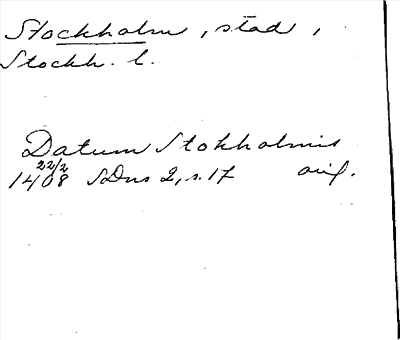 Stockholm, stad,
Stockh. l.
Datum Stokholmis
22/2
1408 SDns 2, s. 17 orig.